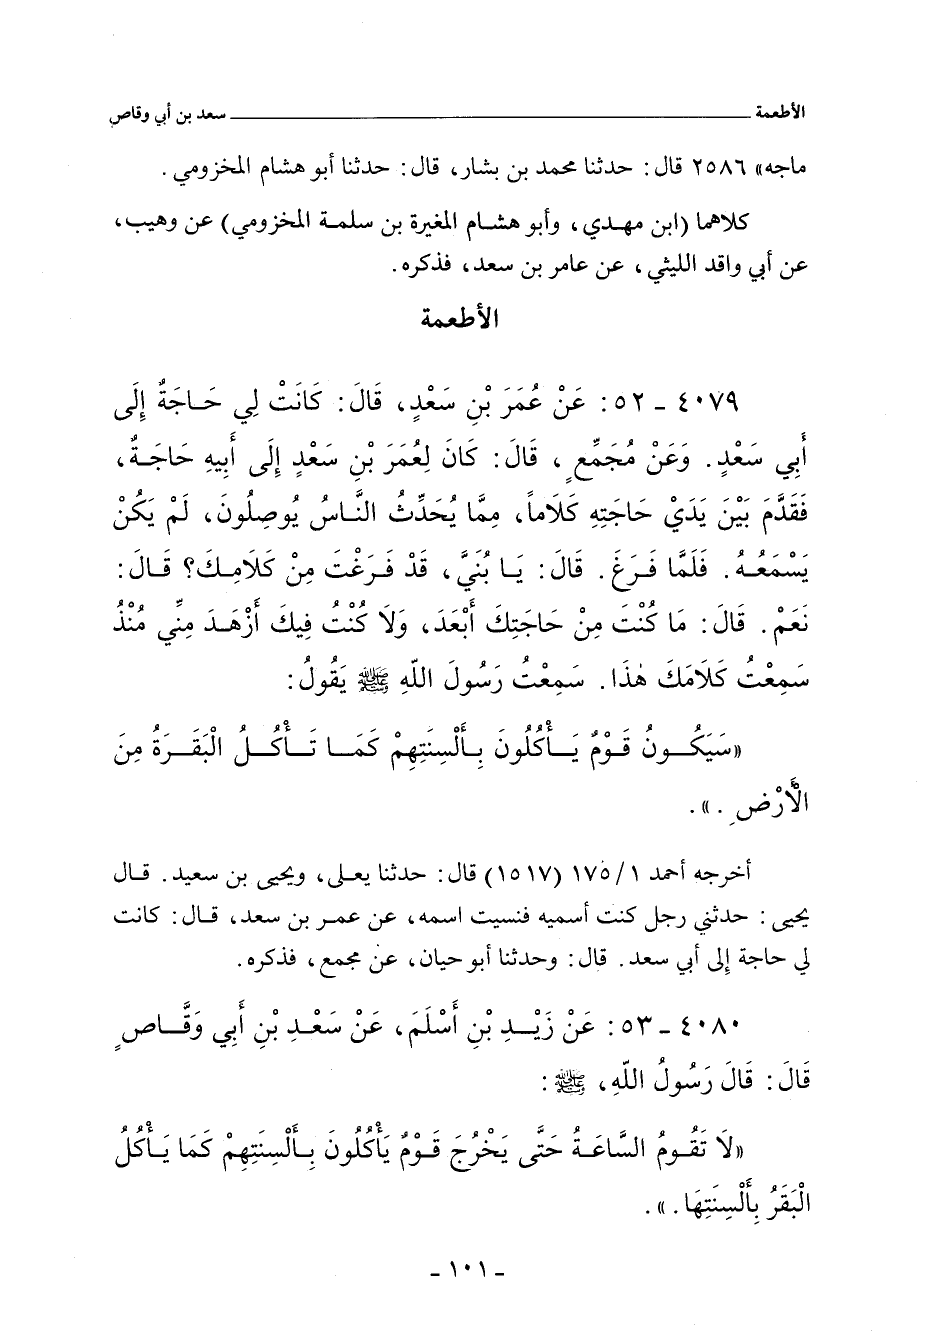 الأطعمة ــــــــــــــــــــ سعد بن أبي وقاص
ماجه» ٢٥٨٦ قال: حدثنا محمد بن بشار، قال: حدثنا أبو هشام المخزومي.
كلاهما (ابن مهدي، وأبو هشام المغيرة بن سلمة المخزومي) عن وهيب،
عن أبي واقد الليثي، عن عامر بن سعد، فذكره.
الأطعمة
٤٠٧٩ - ٥٢: عَنْ عُمَرَ بْنِ سَعْدٍ، قَالَ: كَانَتْ لِي حَاجَةٌ إِلَى
أَبِي سَعْدٍ. وَعَنْ مُجَمِّعٍ، قَالَ: كَانَ لِعُمَرَ بْنِ سَعْدٍ إِلَى أَبِيهِ حَاجَةٌ،
فَقَدَّمَ بَيْنَ يَدَيْ حَاجَتِهِ كَلَاماً، مِمَّا يُحَدِّثُ النَّاسُ يُوصِلُونَ، لَمْ يَكُنْ
يَسْمَعُهُ. فَلَمَّا فَرَغَ. قَالَ: يَا بُنَيَّ، قَدْ فَرَغْتَ مِنْ كَلَامِكَ؟ قَالَ:
نَعَمْ. قَالَ: مَا كُنْتَ مِنْ حَاجَتِكَ أَبْعَدَ، وَلَا كُنْتُ فِيكَ أَزْهَدَ مِنِّي مُنْذُ
سَمِعْتُ كَلَامَكَ هٰذَا. سَمِعْتُ رَسُولَ اللّهِ ﷺ يَقُولُ:
«سَيَكُونُ قَوْمٌ يَأْكُلُونَ بِأَلْسِنَتِهِمْ كَمَا تَأْكُلُ الْبَقَرَةُ مِنَ
الْأَرْضِ.».
أخرجه أحمد ١/ ١٧٥ (١٥١٧) قال: حدثنا يعلى، ويحيى بن سعيد. قال
يحيى: حدثني رجل كنت أسميه فنسيت اسمه، عن عمر بن سعد، قال: كانت
لي حاجة إلى أبي سعد. قال: وحدثنا أبو حيان، عن مجمع، فذكره.
٤٠٨٠ - ٥٣: عَنْ زَيْدِ بْنِ أَسْلَمَ، عَنْ سَعْدِ بْنِ أَبِي وَقَّاصٍ
قَالَ: قَالَ رَسُولُ اللّهِ، ﷺ:
«لَا تَقُومُ السَّاعَةُ حَتَّى يَخْرُجَ قَوْمٌ يَأْكُلُونَ بِأَلْسِنَتِهِمْ كَمَا يَأْكُلُ
الْبَقَرُ بِأَلْسِنَتِهَا.».
- ١٠١ -